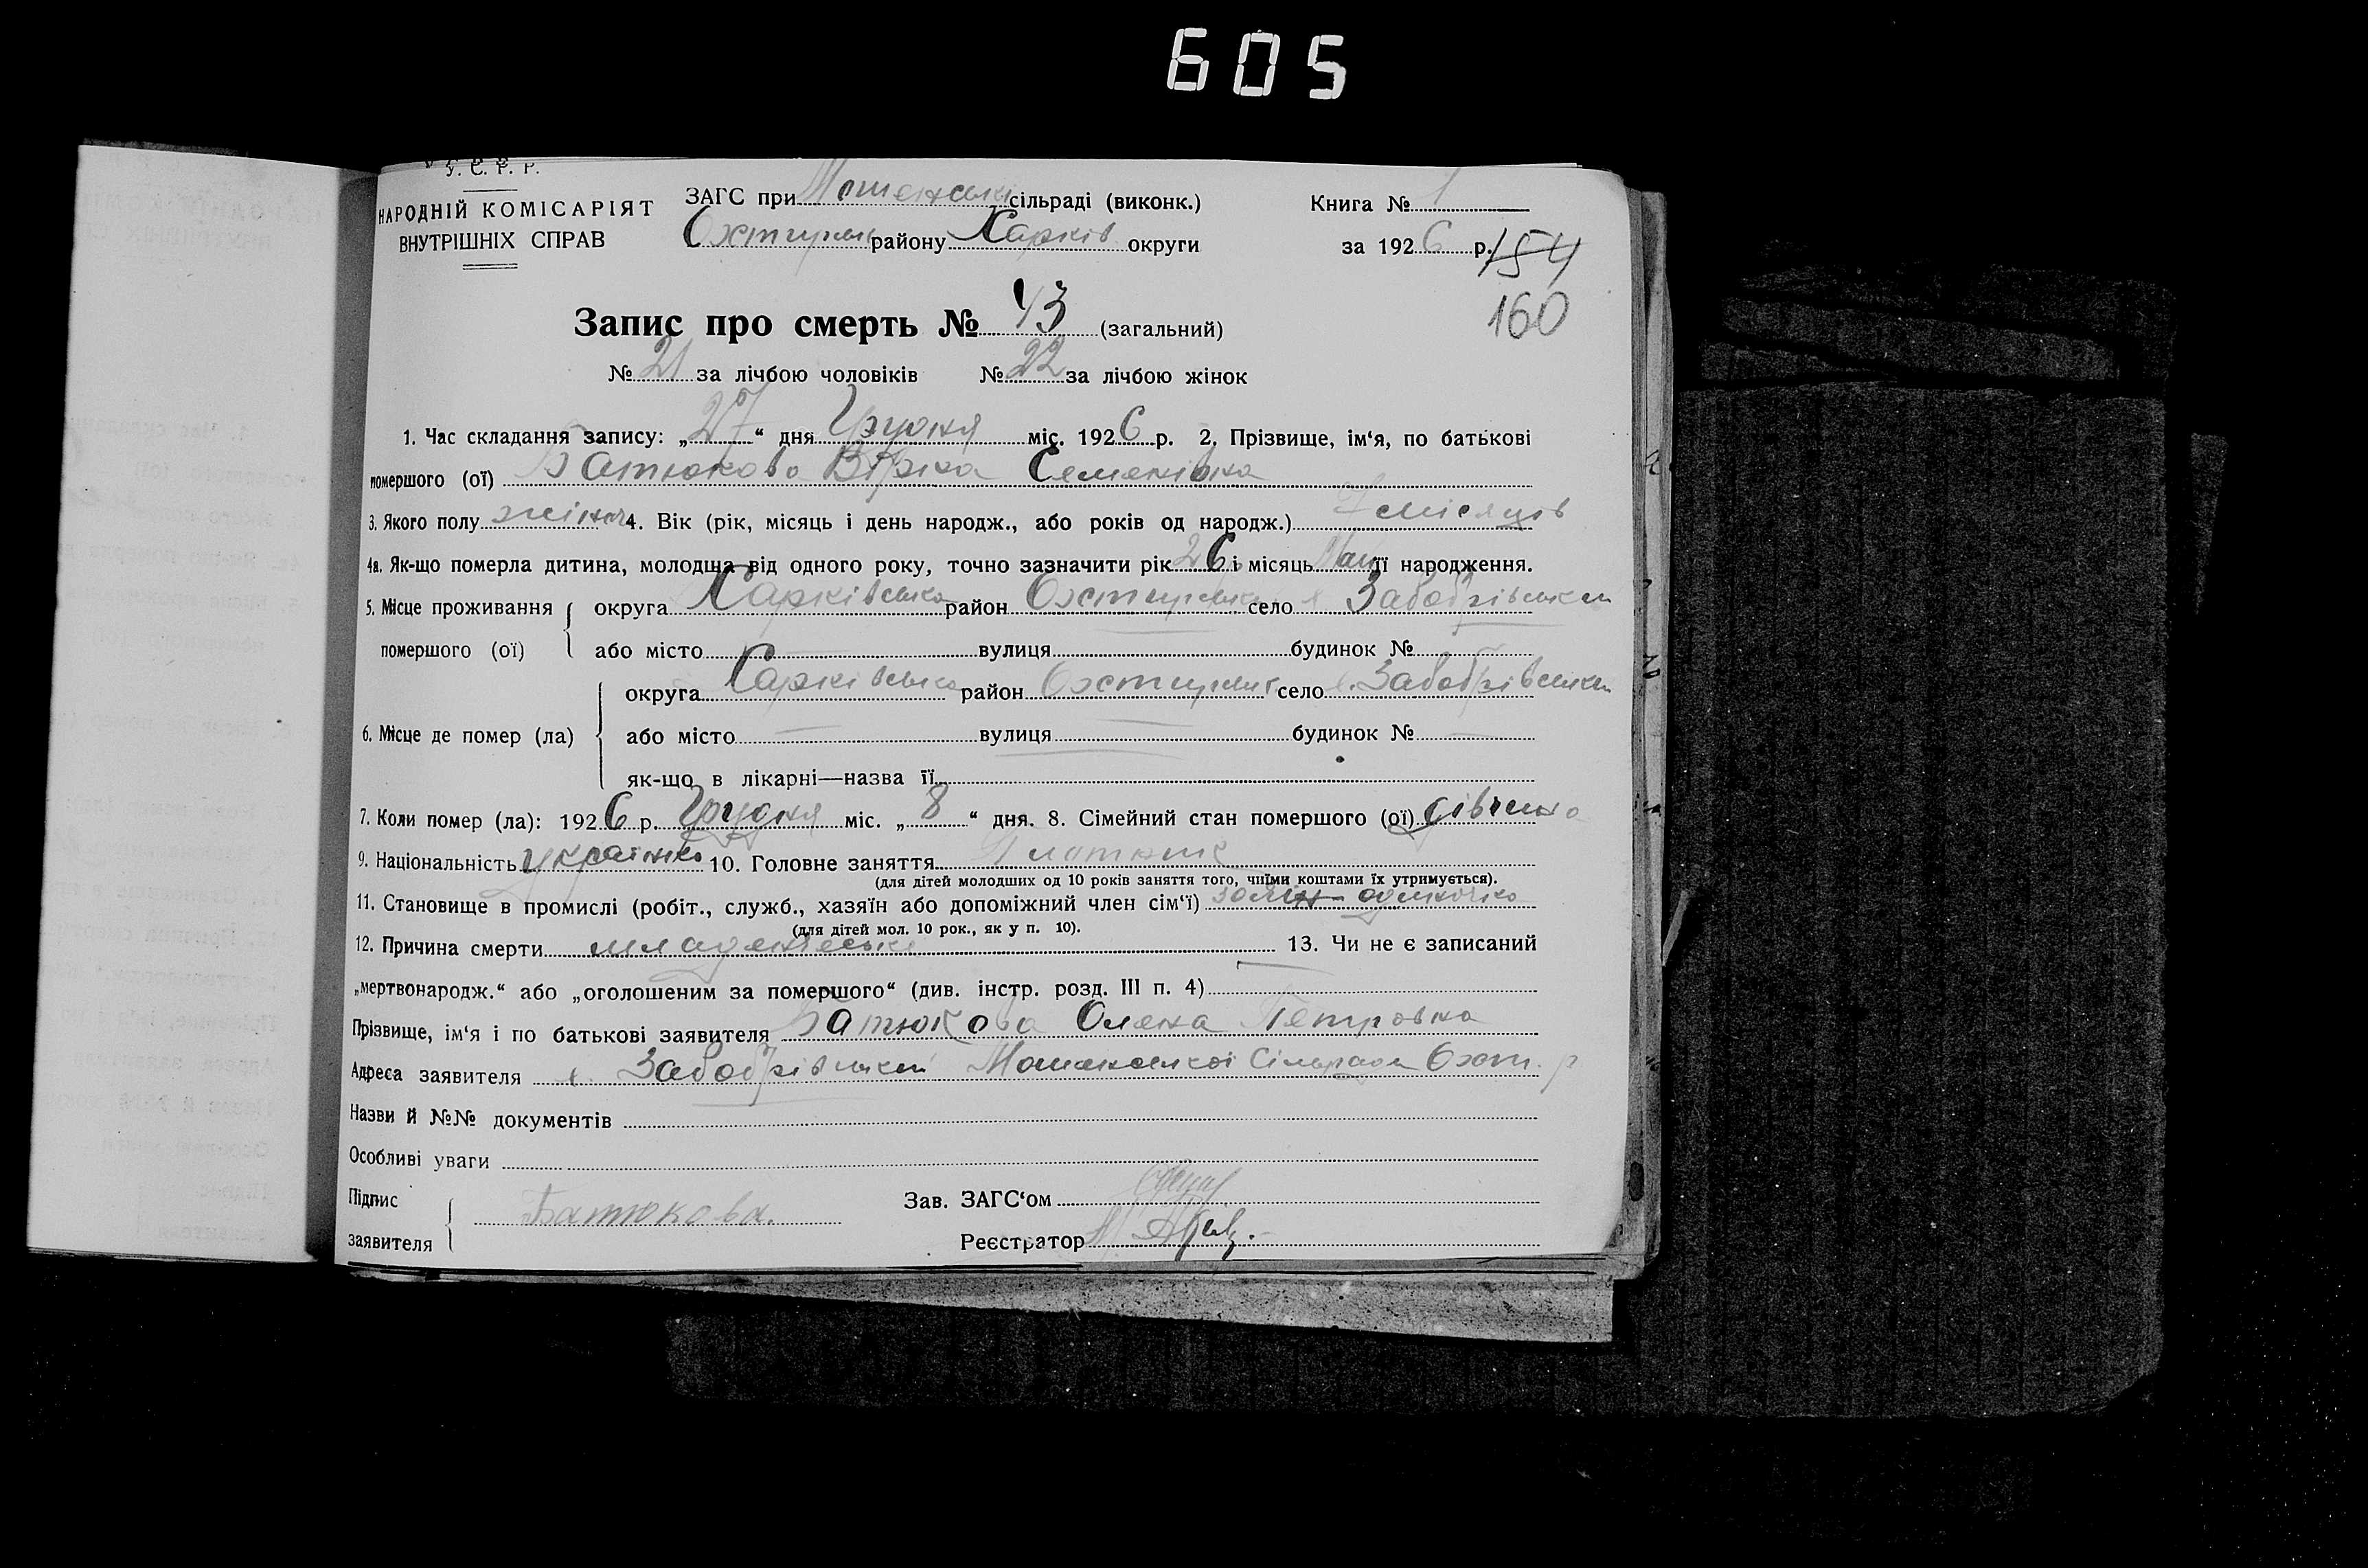 605
У. С. Р. Р.
НАРОДНІЙ КОМІСАРІЯТ
ВНУТРІШНІХ СПРАВ
ЗАГС при Мошенській сільраді (виконк.)
Охтирськ району Харків округи
Книга № 1
за 1926 р.
154
160
Запис про смерть № 43 (загальний)
№ 21 за лічбою чоловіків № 22 за лічбою жінок
1. Час складання запису: „27“ дня Грудня міс. 1926 р. 2. Прізвище, ім‘я, по батькові
помершого (ої) Батюкова Вірка Семенівна
3. Якого полу жіноч 4. Вік (рік, місяць і день народж., або років од народж.) 7 місяців
4а. Як-що померла дитина, молодша від одного року, точно зазначити рік 26 і місяць Май її народження.
5. Місце проживання помершого (ої) округа Харківська район Охтирськ село х Забобрівський
або місто вулиця будинок №
6. Місце де помер (ла) округа Харківська район Охтирськ село х. Забобрівський
або місто вулиця будинок №
як-що в лікарні—назва її
7. Коли помер (ла): 1926 р. Грудня міс. „8“ дня. 8. Сімейний стан помершого (ої) дівчина
9. Національність українка 10. Головне заняття
(для дітей молодших од 10 років заняття того, чиїми коштами їх утримується).
11. Становище в промислі (робіт., служб., хазяїн або допоміжний член сім‘ї) одиночка
(для дітей мол. 10 рок., як у п. 10).
12. Причина смерти младенческ 13. Чи не є записаний
„мертвонародж.“ або „оголошеним за помершого“ (див. інстр. розд. III п. 4)
Прізвище, ім‘я і по батькові заявителя Батюкова Олена Петровна
Адреса заявителя х. Забобрівський Мошенської Сільради Охт. р
Назви й №№ документів
Особливі уваги
Підпис заявителя Батюкова.
Зав. ЗАГС‘ом
Реєстратор